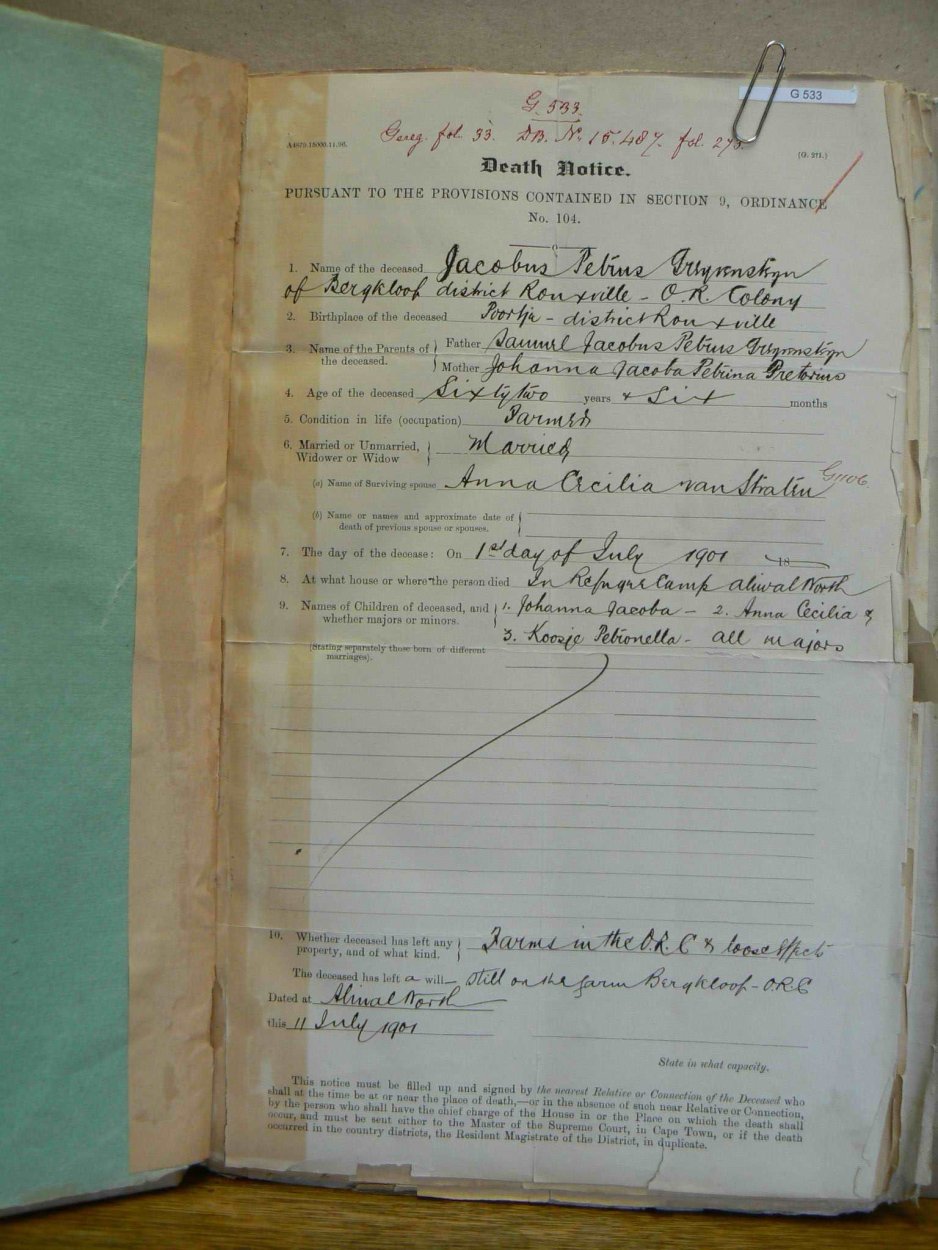 G 533
G. 533.
Gereg. fol. 33. DB. No. 15.487. fol. 275
A4879.15000.11.96.
(G. 271.)
Death Notice.
PURSUANT TO THE PROVISIONS CONTAINED IN SECTION 9, ORDINANCE
No. 104.
1. Name of the deceased Jacobus Petrus
of Bergkloof district Rouxville - O.R. Colony
2. Birthplace of the deceased Poortje - district Rouxville
3. Name of the Parents of the deceased. Father Samuel Jacobus Petrus
Mother Johanna Jacoba Petrina Pretorius
4. Age of the deceased Sixty two years & Six months
5. Condition in life (occupation) Farmer
6. Married or Unmarried, Widower or Widow Married
(a) Name of Surviving spouse Anna Cecilia van Straten
(b) Name or names and approximate date of death of previous spouse or spouses.
7. The day of the decease: On 1st day of July 1901 18
8. At what house or where the person died In Refugee Camp Aliwal North
9. Names of Children of deceased, and whether majors or minors. 1. Johanna Jacoba - 2. Anna Cecilia &
3. Koosje Petronella - all majors
(Stating separately those born of different marriages).
10. Whether deceased has left any property, and of what kind. Farms in the O.R.C & loose effects
The deceased has left a will - still on the farm Bergkloof - O.R.C
Dated at Aliwal North
this 11 July 1901
State in what capacity.
This notice must be filled up and signed by the nearest Relative or Connection of the Deceased who
shall at the time be at or near the place of death,—or in the absence of such near Relative or Connection,
by the person who shall have the chief charge of the House in or the Place on which the death shall
occur, and must be sent either to the Master of the Supreme Court, in Cape Town, or if the death
occurred in the country districts, the Resident Magistrate of the District, in duplicate.